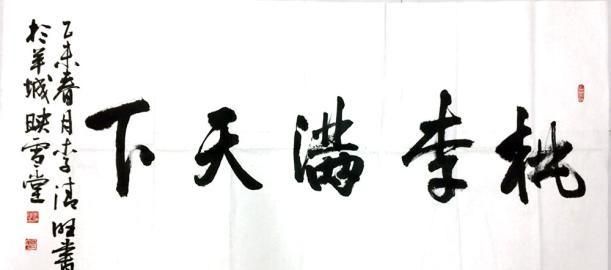 桃李满天下
乙未春月李清旺書
於羊城映雪堂